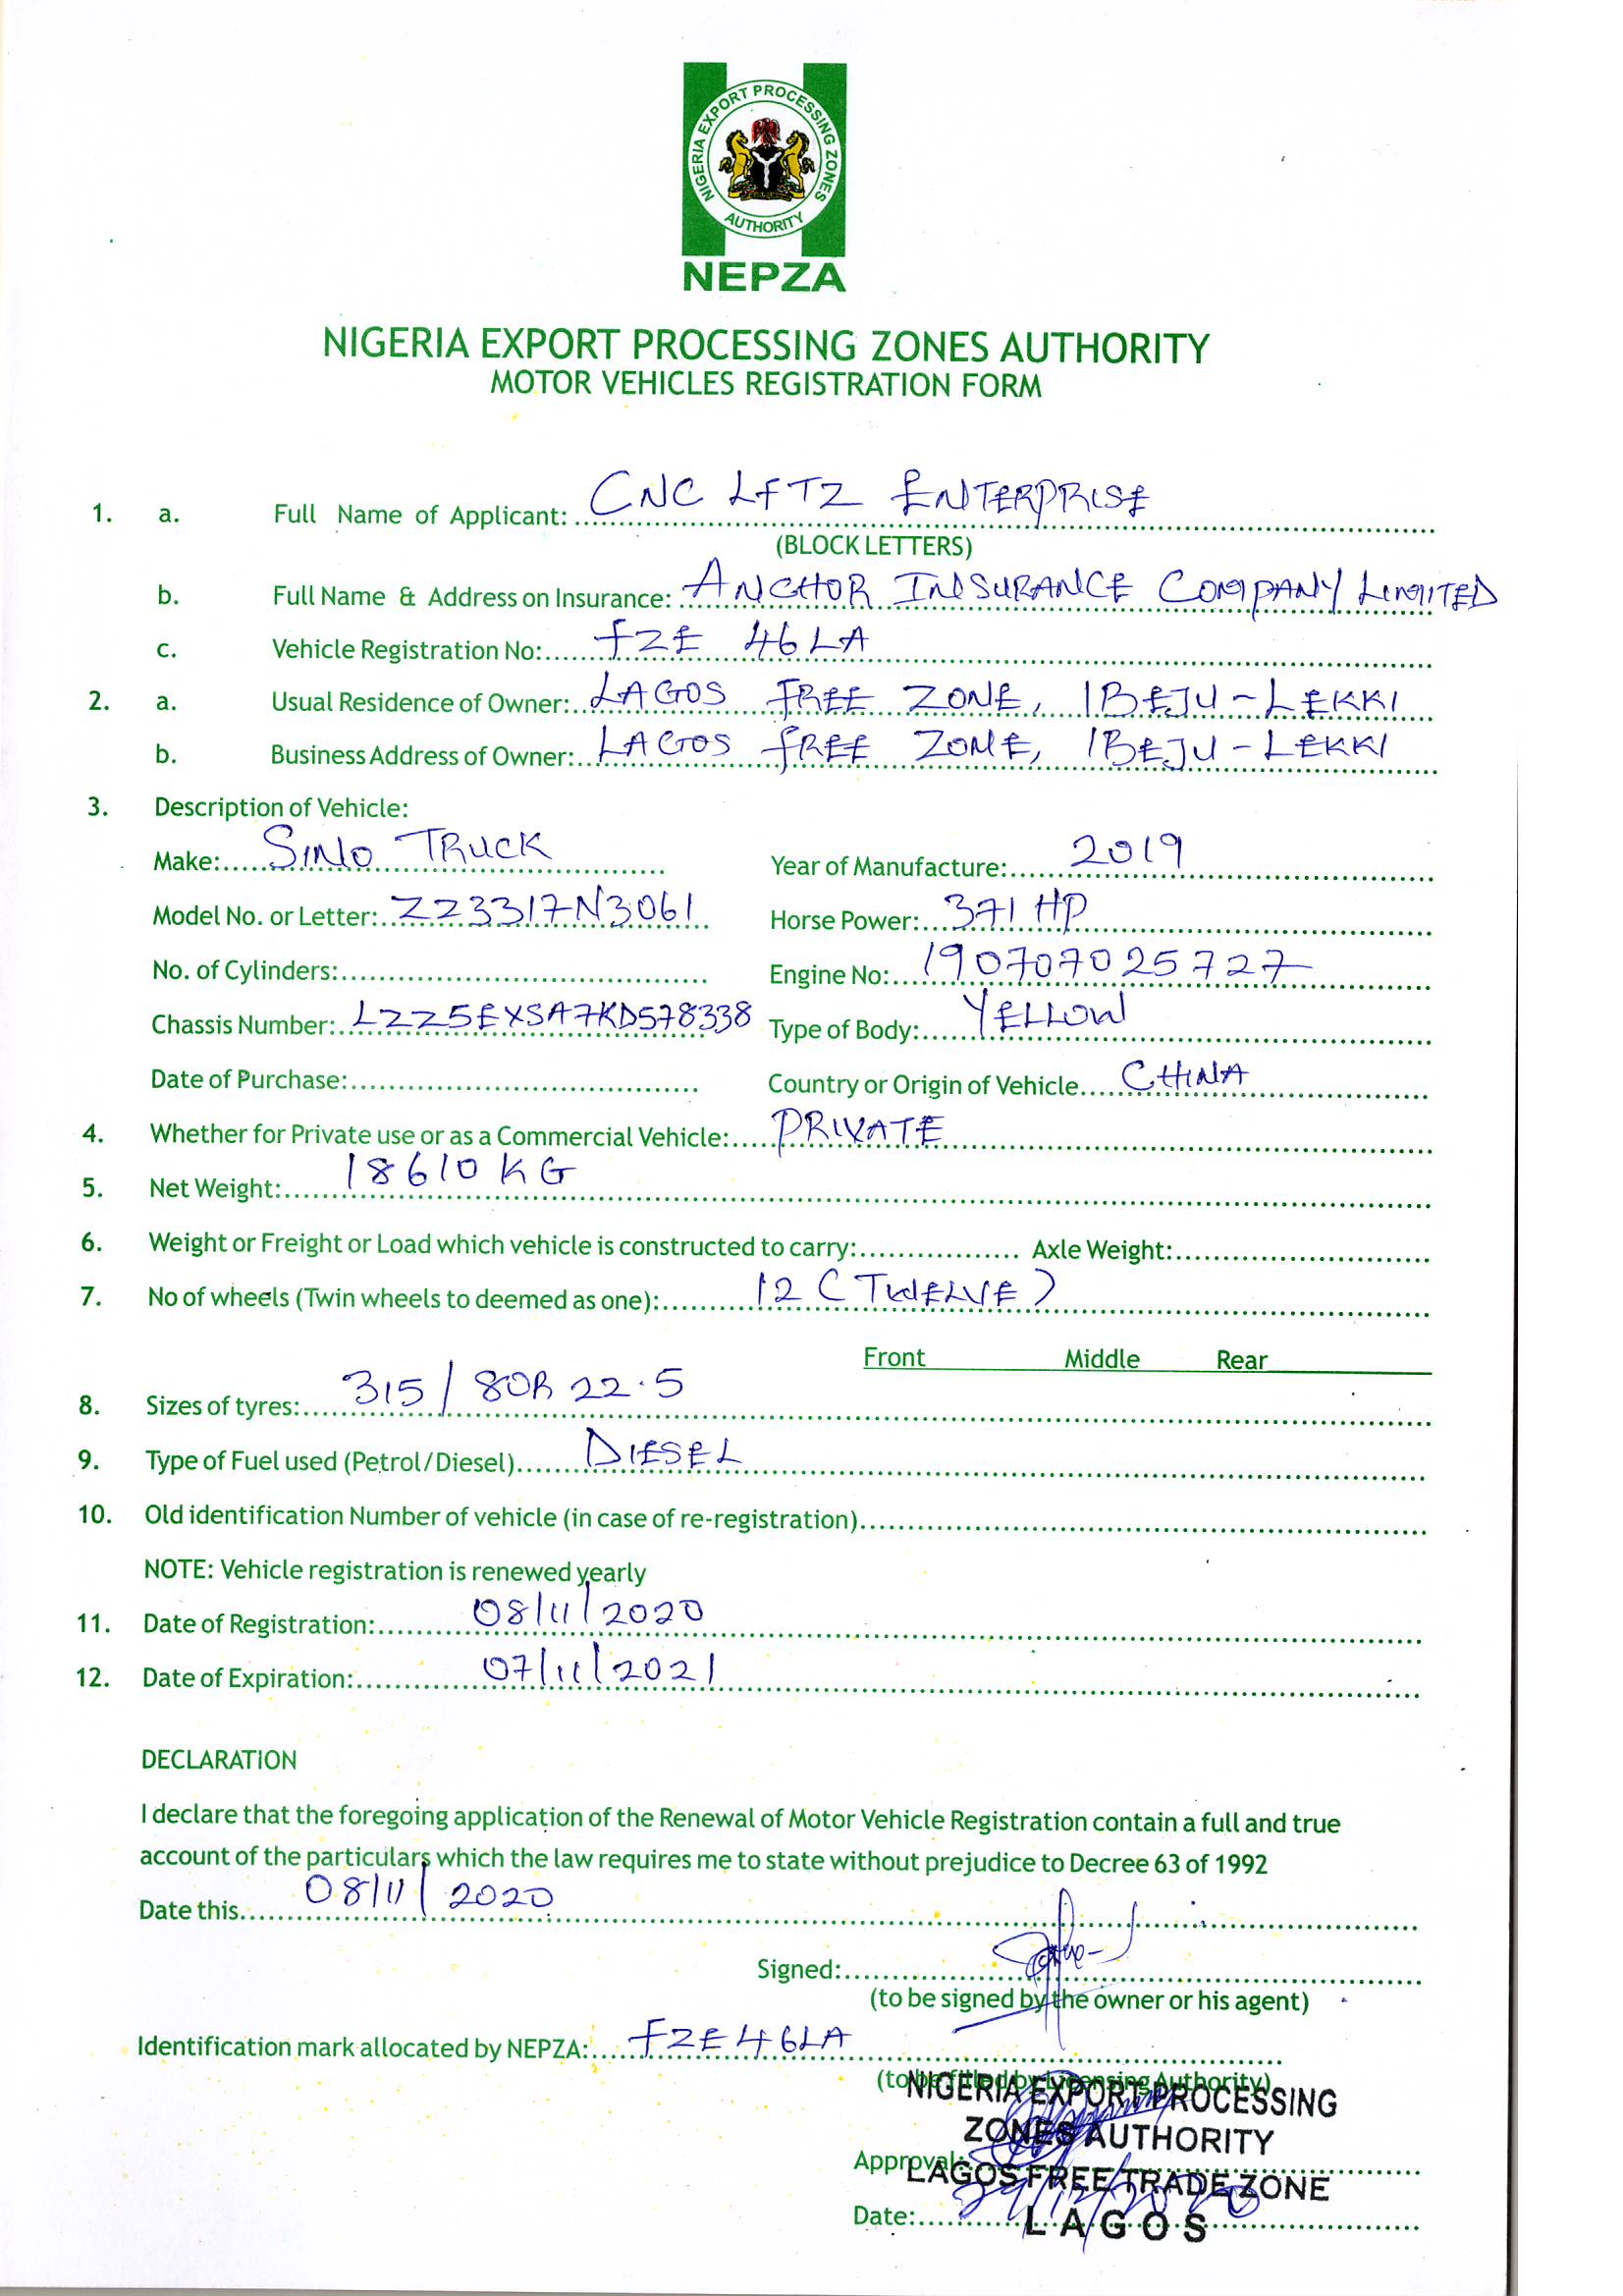 NIGERIA EXPORT PROCESSING ZONES
AUTHORITY
NEPZA
NIGERIA EXPORT PROCESSING ZONES AUTHORITY
MOTOR VEHICLES REGISTRATION FORM
1. a. Full Name of Applicant: CNC LFTZ ENTERPRISE
(BLOCK LETTERS)
b. Full Name & Address on Insurance: ANCHOR INSURANCE COMPANY LIMITED
c. Vehicle Registration No: FZE 46LA
2. a. Usual Residence of Owner: LAGOS FREE ZONE, IBEJU-LEKKI
b. Business Address of Owner: LAGOS FREE ZONE, IBEJU-LEKKI
3. Description of Vehicle:
Make: SINO TRUCK Year of Manufacture: 2019
Model No. or Letter: ZZ3317N3061 Horse Power: 371 HP
No. of Cylinders: Engine No: 190707025727
Chassis Number: LZZ5EXSA7KD578338 Type of Body: YELLOW
Date of Purchase: Country or Origin of Vehicle CHINA
4. Whether for Private use or as a Commercial Vehicle: PRIVATE
5. Net Weight: 18610 KG
6. Weight or Freight or Load which vehicle is constructed to carry: Axle Weight:
7. No of wheels (Twin wheels to deemed as one): 12 (TWELVE)
Front Middle Rear
8. Sizes of tyres: 315/80R 22.5
9. Type of Fuel used (Petrol/Diesel) DIESEL
10. Old identification Number of vehicle (in case of re-registration)
NOTE: Vehicle registration is renewed yearly
11. Date of Registration: 08/11/2020
12. Date of Expiration: 07/11/2021
DECLARATION
I declare that the foregoing application of the Renewal of Motor Vehicle Registration contain a full and true
account of the particulars which the law requires me to state without prejudice to Decree 63 of 1992
Date this 08/11/2020
Signed:
(to be signed by the owner or his agent)
Identification mark allocated by NEPZA: FZE46LA
(to be filled by Licensing Authority)
NIGERIA EXPORT PROCESSING
ZONES AUTHORITY
Approval:
LAGOS FREE TRADE ZONE
Date:
LAGOS